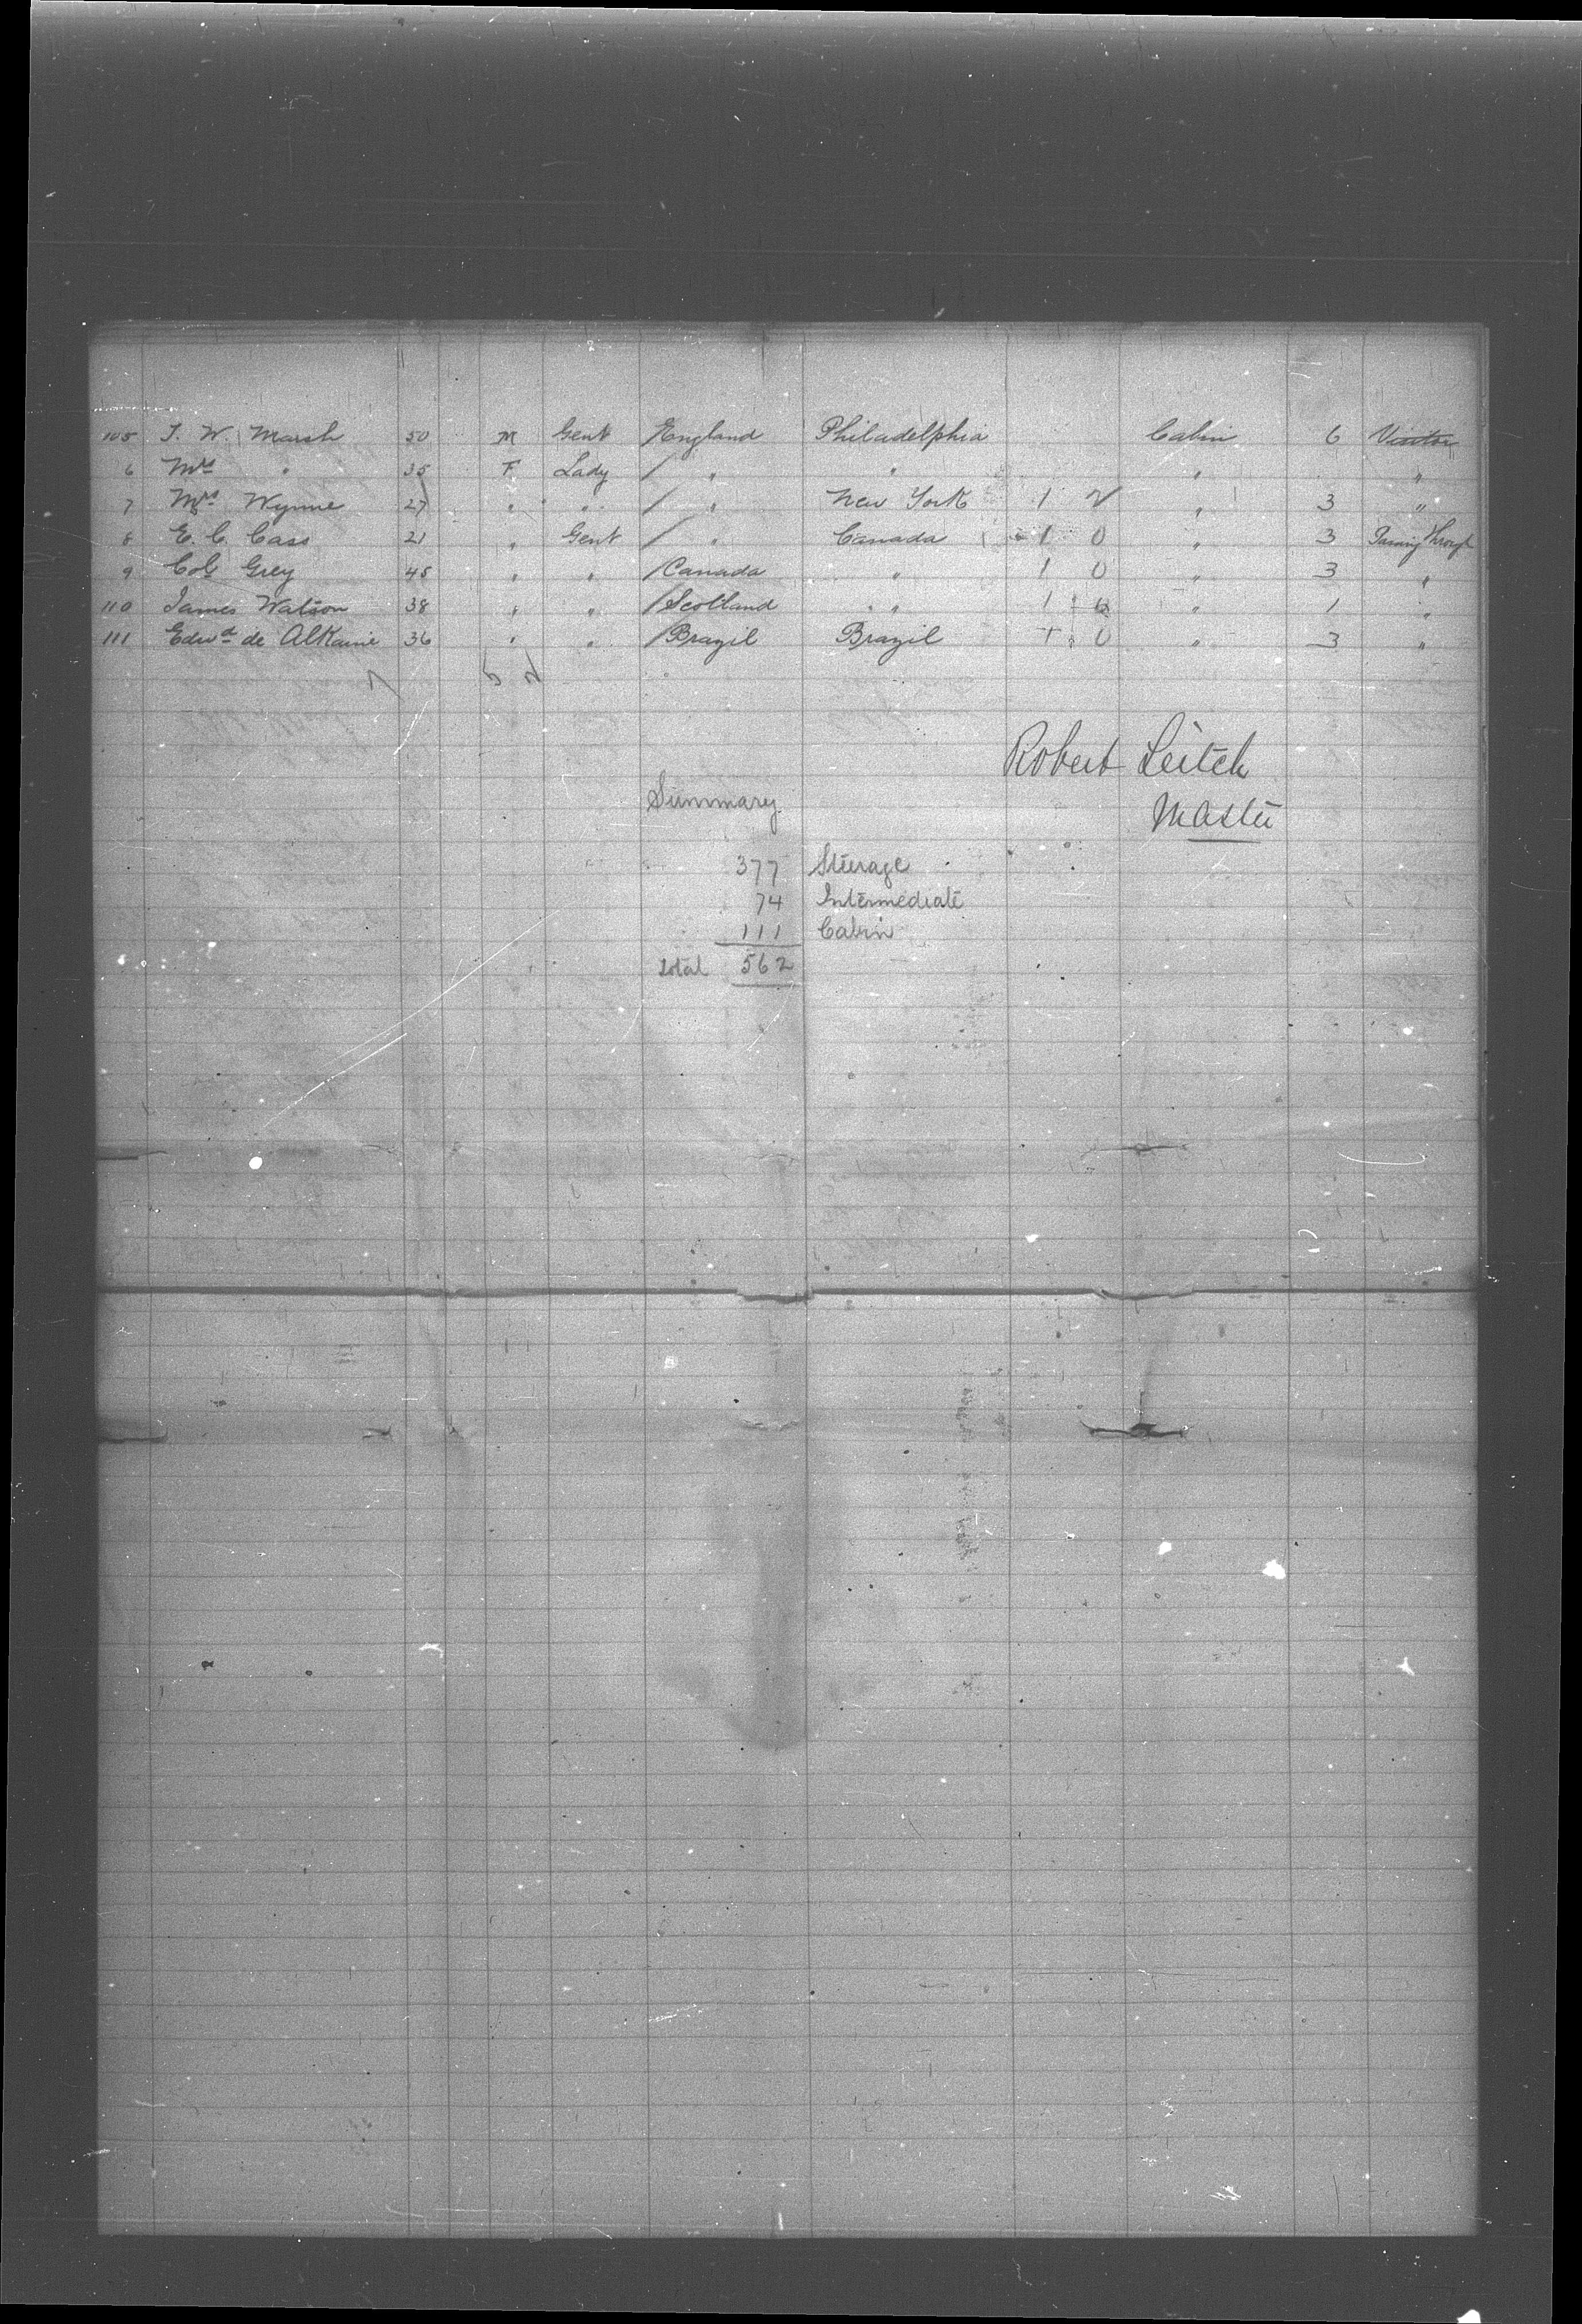 105 T. W. Marsh 50 M Gent England Philadelphia Cabin 6 Visitor
6 Mrs " 35 F Lady / " " " "
7 Mrs Wynne 27 " " / " New York 1 " 3 "
8 E. C. Cass 21 " Gent / " Canada 1 0 " 3 Passing through
9 Col Grey 45 " " / Canada " 1 0 " 3 "
110 James Watson 38 " " / Scotland " " 1 " 1 "
111 Edwd de Alkaine 36 " " / Brazil Brazil 0 " 3 "
Robert Leitch
Master
Summary
377 Steerage
74 Intermediate
111 Cabin
total 562